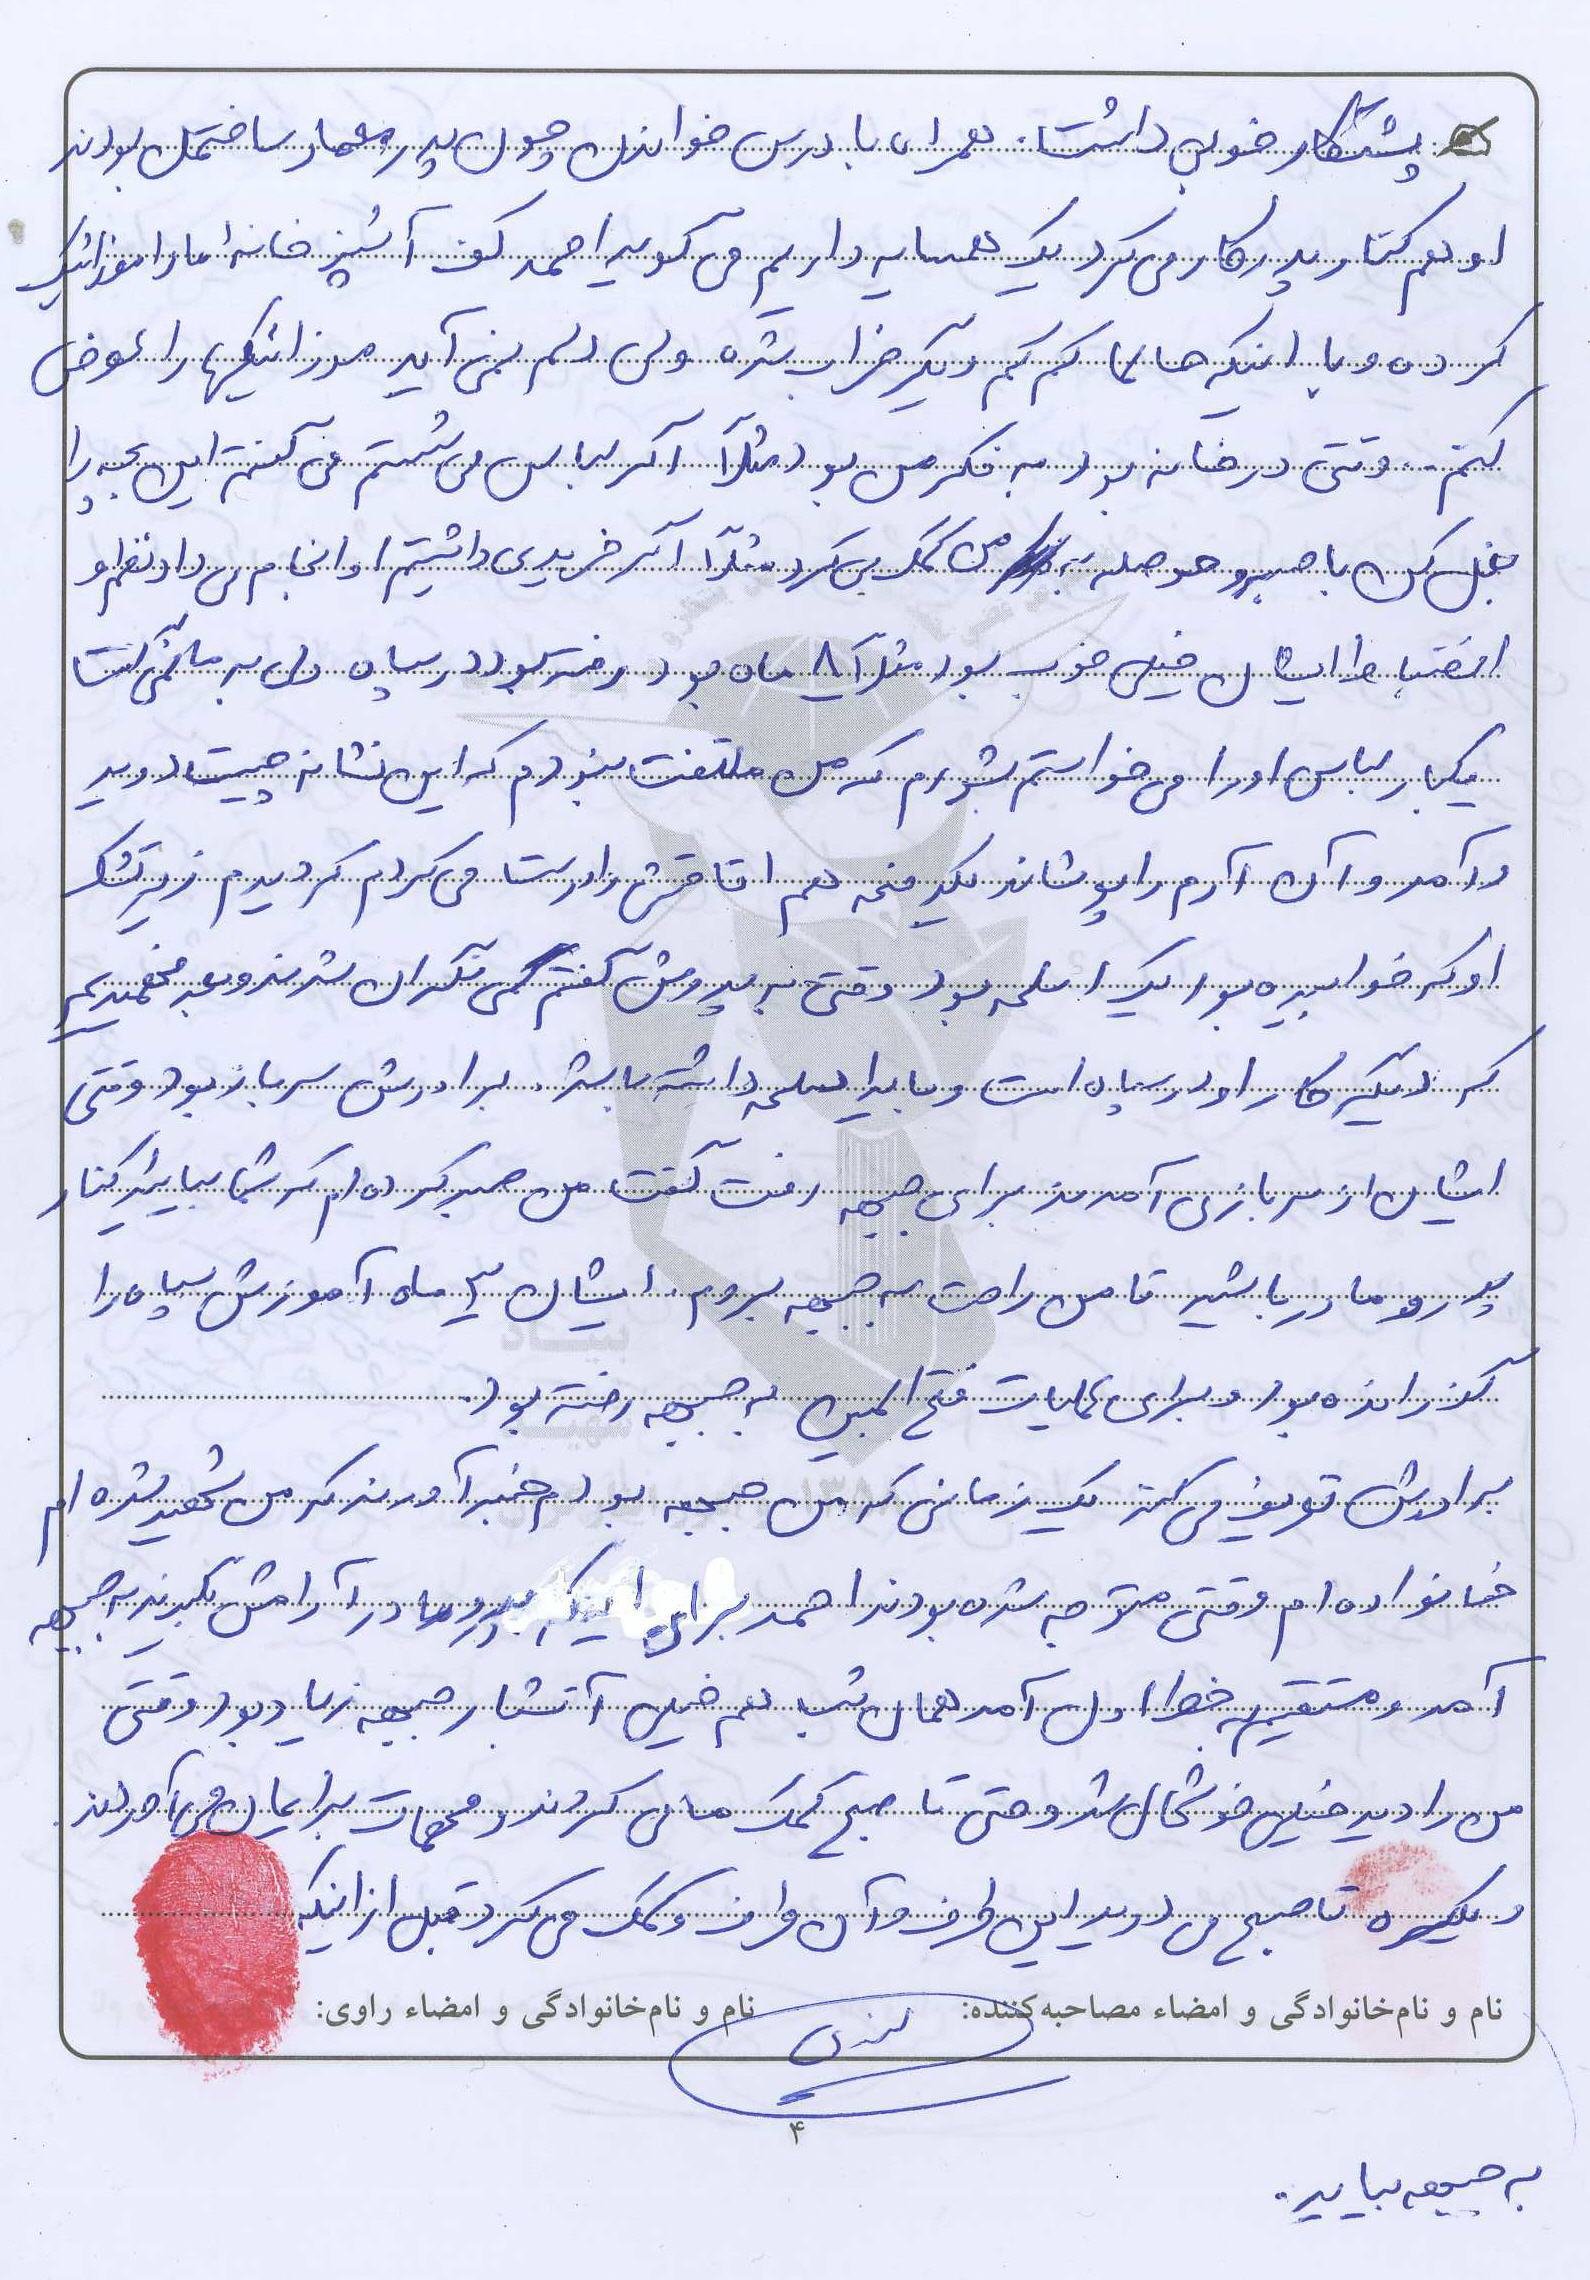 پشتکار خوبی داشت. همراه با درس خواندن چون پدر معمار ساختمان بودند
او هم کنار پدر کار می کرد یک همسایه داریم می گوید احمد کف آشپزخانه ما را موزائیک
کرده و با اینکه حالا کم کم دیگر خراب شده ولی دلم نمی آید موزائیکها را عوض
کنم. وقتی در خانه بود به فکر من بود مثلاً اگر لباس می شستم می گفتم این بچه را
بغل کن با صبر و حوصله به من کمک می کرد مثلاً اگر خریدی داشتیم او انجام می داد نظم و
انضباط ایشان خیلی خوب بود مثلاً ۸ ماه بود رفته بود در سپاه ولی به ما نمی گفت
یکبار لباس او را می خواستم بشورم که من ملتفت نبودم که این نشانه چیست دوید
و آمد و آن آرم را پوشاند یکدفعه هم اتاقش را درست می کردم که دیدم زیر تشک
او که خوابیده بود یک اسلحه بود وقتی به پدرش گفتم کمی نگران شدند و بعد فهمیدیم
که دیگر کار او در سپاه است و باید اسلحه داشته باشد. برادرش سرباز بود وقتی
ایشان از سربازی آمدند برای جبهه رفت گفت من صبر کرده ام که شما بیایید کنار
پدر و مادر باشید تا من راحت به جبهه بروم. ایشان ۳ ماه آموزش سپاه را
گذرانده بود و برای عملیات فتح المبین به جبهه رفته بود.
برادرش تعریف می کند یک زمانی که من جبهه بودم خبر آوردند که من شهید شده ام
خانواده ام وقتی متوجه شده بودند احمد برای اینکه پدر و مادر آرامش بگیرند به جبهه
آمد و مستقیم به خط اول آمد همان شب هم خیلی آتشبار جبهه زیاد بود وقتی
من را دید خیلی خوشحال شد و حتی تا صبح کمک ما می کردند و مهمات برایمان می آوردند
و یکسره تا صبح می دوید این طرف و آن طرف و کمک می کرد قبل از اینکه
نام و نام خانوادگی و امضاء مصاحبه کننده: نام و نام خانوادگی و امضاء راوی:
۴
به جبهه بیاید.